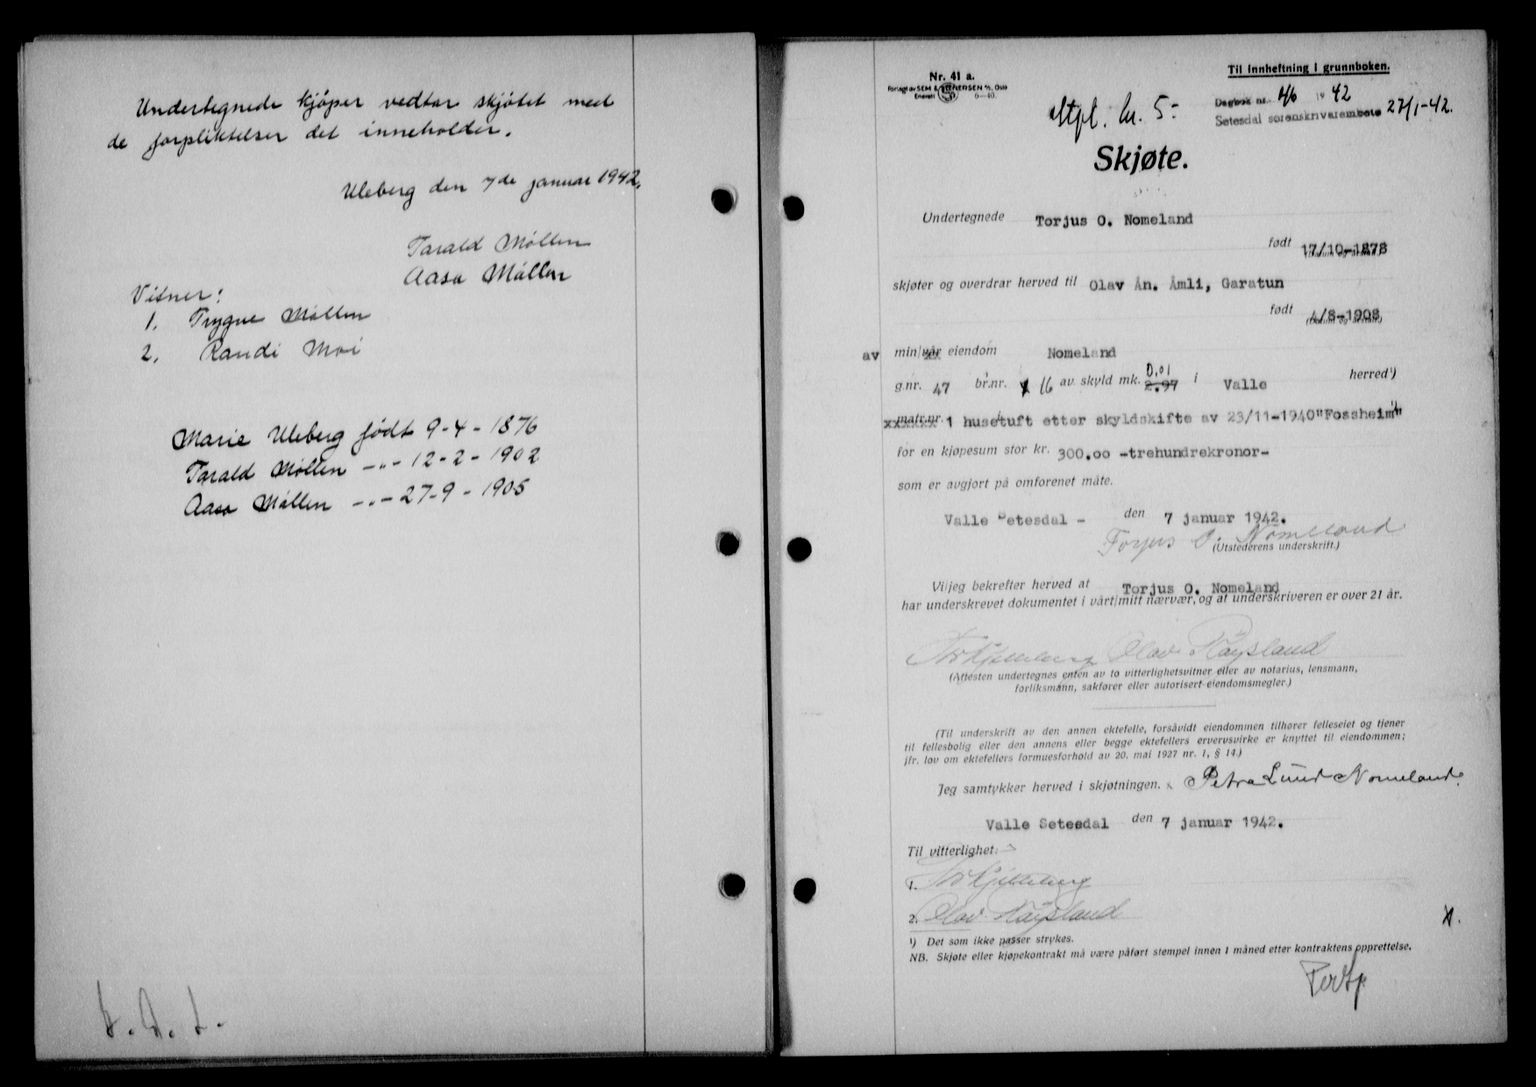 Undertegnede kjøper vedtar skjøtet med
de forpliktelser det inneholder.
Uleberg den 7de januar 1942.
Tarald Møllen
Aasa Møllen
Vitner:
1. Trygve Møllen
2. Randi Moi
Marie Uleberg født 9-4-1876
Tarald Møllen -"- 12-2-1902
Aasa Møllen -"- 27-9-1905
Nr. 41 a.
Til innheftning i grunnboken.
Dagbok nr. 46 1942
Setesdal sorenskriverembete 27/1-42.
Stpl. kr. 5:-
Skjøte.
Undertegnede Torjus O. Nomeland
født 17/10-1878
skjøter og overdrar herved til Olav Ån. Åmli, Garatun
født 4/8-1908
av min/vår eiendom Nomeland
g.nr. 47 br.nr. 16 av skyld mk. 0.01 2.97 i Valle herred¹)
matr.nr. 1 husetuft etter skyldskifte av 23/11-1940 "Fossheim"
for en kjøpesum stor kr. 300.00 -trehundrekronor-
som er avgjort på omforenet måte.
Valle Setesdal - den 7 januar 1942.
Torjus O. Nomeland
(Utstederens underskrift.)
Vi/jeg bekrefter herved at Torjus O. Nomeland
har underskrevet dokumentet i vårt/mitt nærvær, og at underskriveren er over 21 år.
Olav Råysland
(Attesten undertegnes enten av to vitterlighetsvitner eller av notarius, lensmann,
forliksmann, sakfører eller autorisert eiendomsmegler.)
(Til underskrift av den annen ektefelle, forsåvidt eiendommen tilhører felleseiet og tjener
til fellesbolig eller den annens eller begge ektefellers ervervsvirke er knyttet til eiendommen;
jfr. lov om ektefellers formuesforhold av 20. mai 1927 nr. 1, § 14.)
Jeg samtykker herved i skjøtningen. Petra Lund Nomeland.
Valle Setesdal den 7 januar 1942.
Til vitterlighet:
1.
2. Olav Råysland
¹) Det som ikke passer strykes.
NB. Skjøte eller kjøpekontrakt må være påført stempel innen 1 måned etter kontraktens opprettelse.